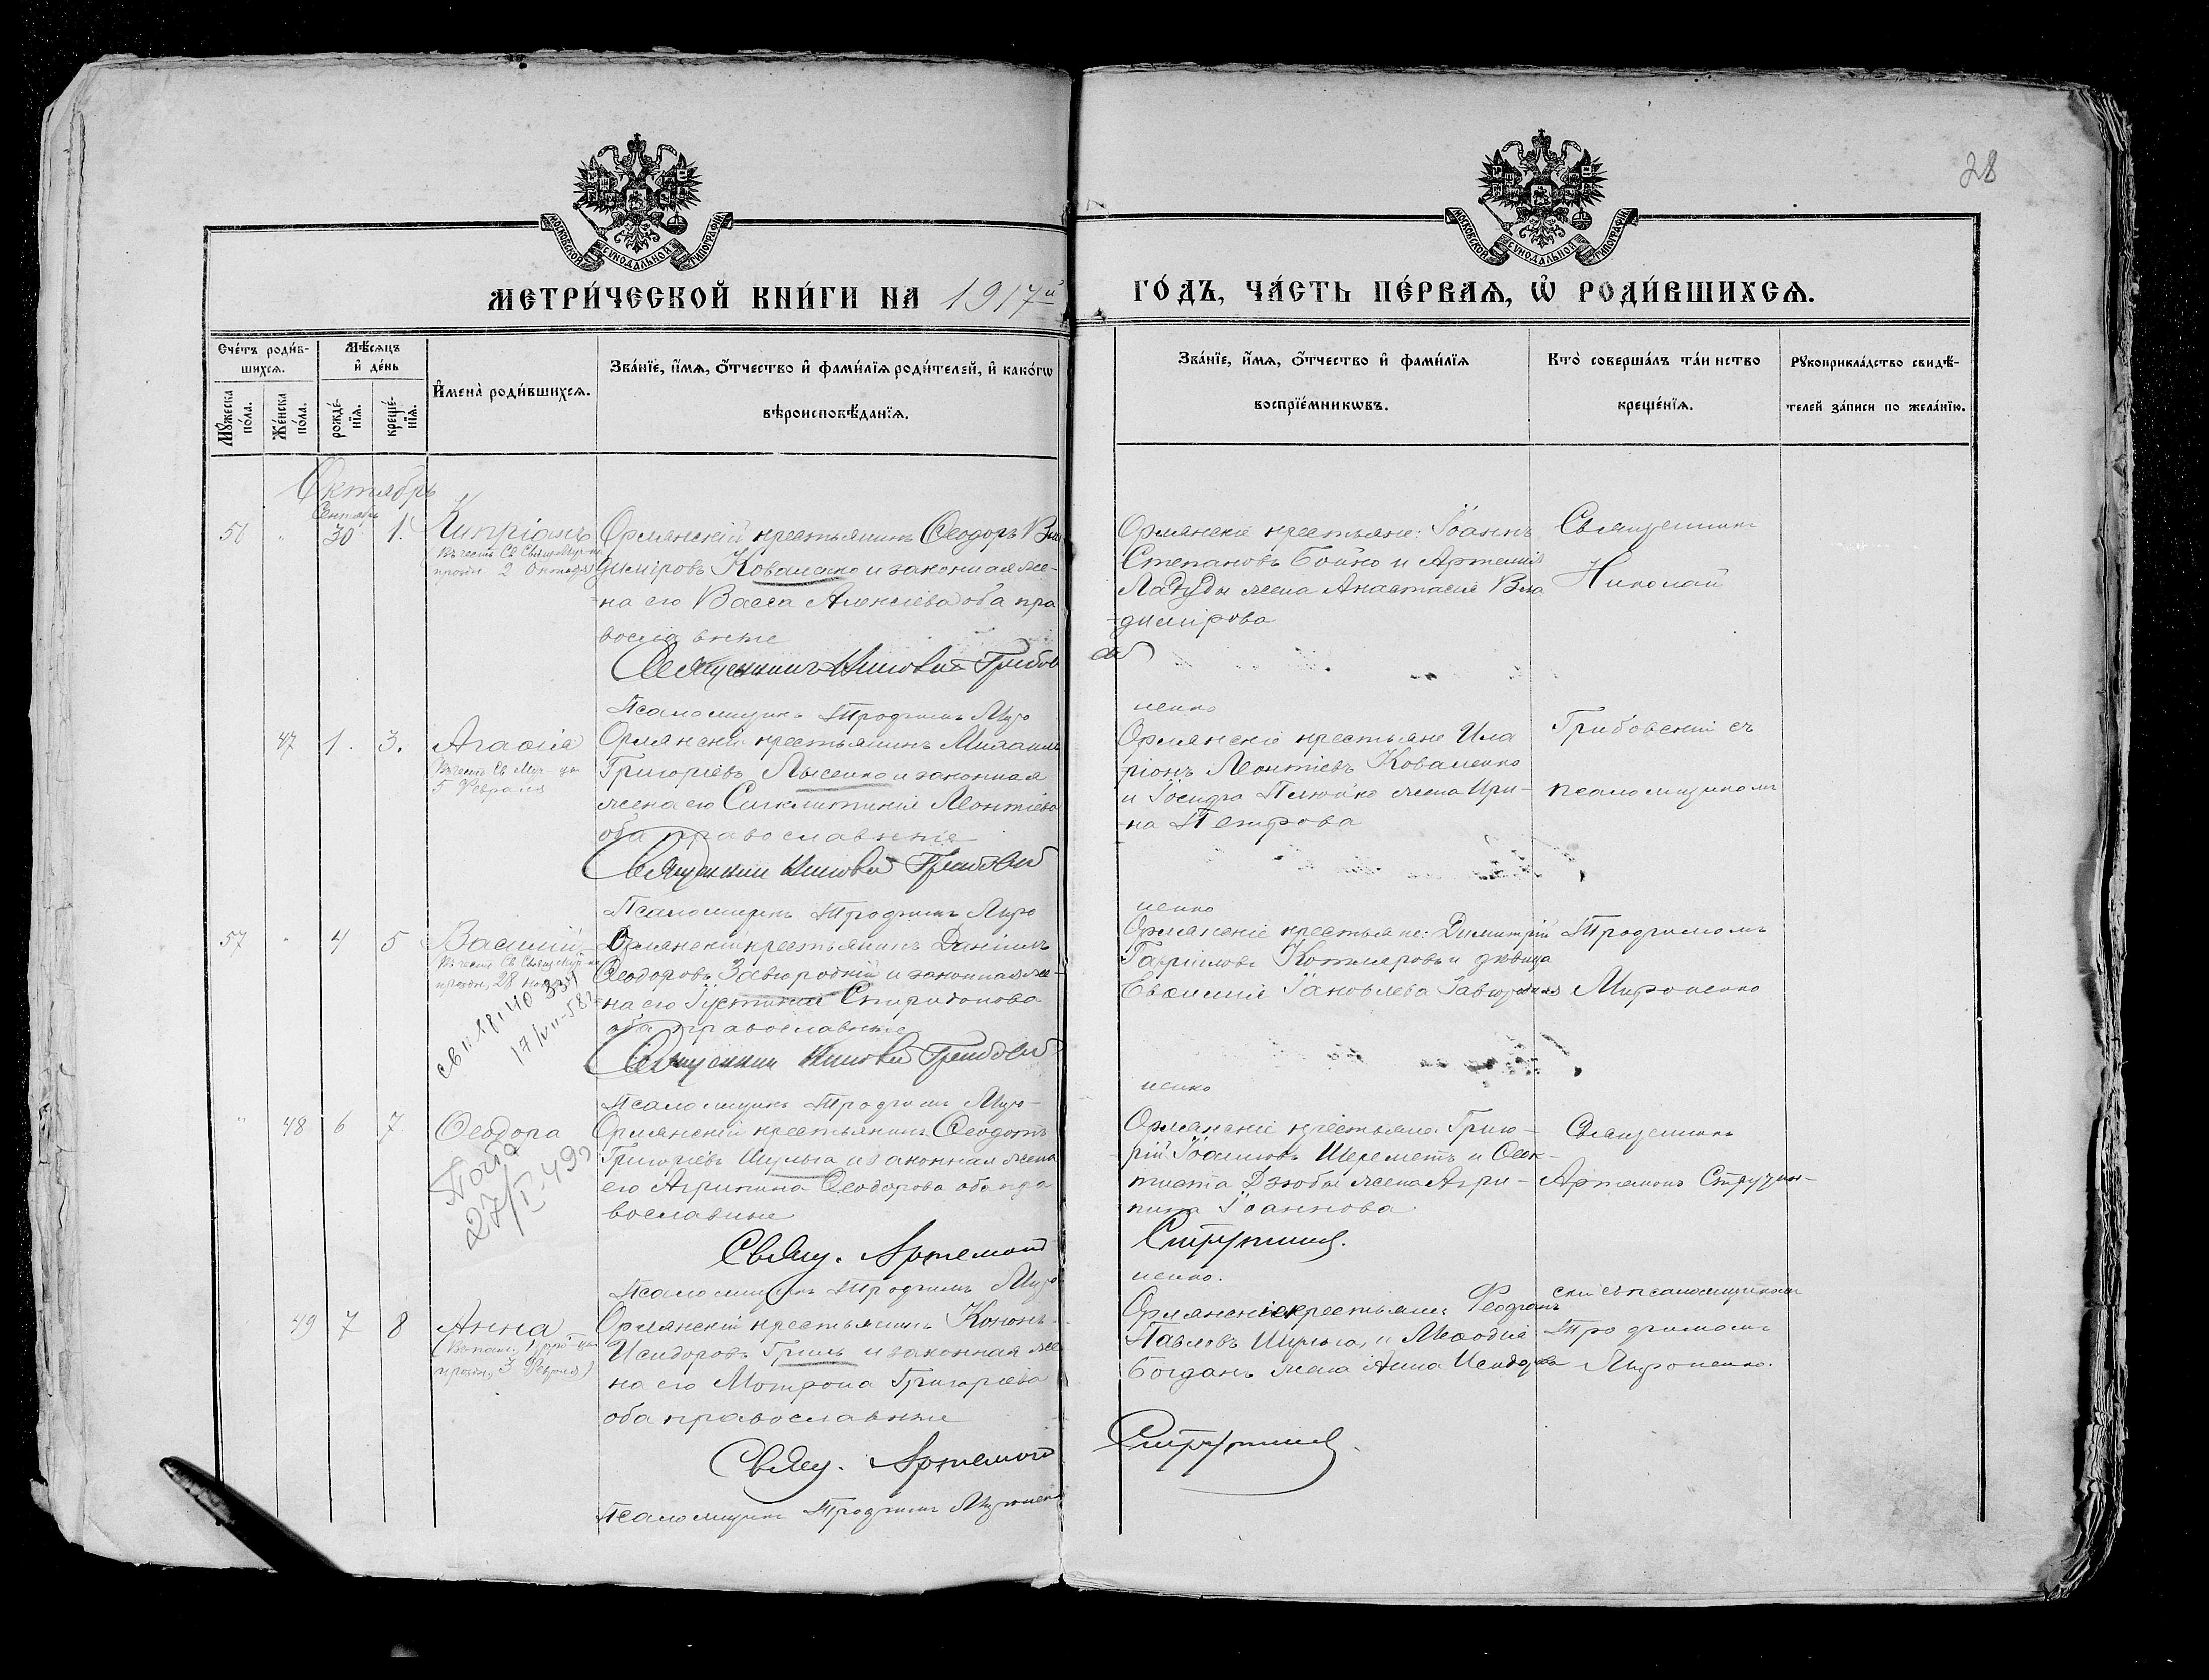 28
МОСКОВСКОЙ СУНОДАЛЬНОЙ ТИПОГРАФІИ
МОСКОВСКОЙ СУНОДАЛЬНОЙ ТИПОГРАФІИ
МЕТРИ́ЧЕСКОЙ КНИ́ГИ НА 1917й ГО́ДЪ, ЧА́СТЬ ПЕ́РВАѦ, Ѡ РОДИ́ВШИХСѦ.
Сче́тъ роди́в-
шихсѧ.
Мꙋ́жеска по́ла.
Же́нска по́ла.
Мѣ́сѧцъ
и҆ де́нь
рожде́-
нїѧ.
креще́-
нїѧ.
И҆мена̀ роди́вшихсѧ.
Зва́нїе, и҆́мѧ, ѻ҆́тчество и҆ фами́лїѧ роди́телей, и҆ како́гѡ
вѣроисповѣ́данїѧ.
Зва́нїе, и҆́мѧ, ѻ҆́тчество и҆ фами́лїѧ
воспрїе́мникѡвъ.
Кто̀ соверша́лъ та́инство
креще́нїѧ.
Рꙋкоприкла́дство свидѣ́-
телей за́писи по жела́нїю.
Октябрь
Сентябрь
30 1. Кипріанъ
2 Октября
Орлянскій крестьянинъ Ѳеодоръ Вла
диміровъ Коваленко и законная же-
на его Васса Алексіева оба пра
вославные
Священникъ Николай Грибов
Псаломщикъ Трофимъ Миро
Орлянскіе крестьяне: Іоаннъ
Степановъ Бойко и Артемія
жена Анастасія Вла
-димірова
ненко
Священникъ
Николай
47 1. 3. Агаѳія
5 Февраля
Орлянскій крестьянинъ Михаилъ
Григоріевъ Лысенко и законная
жена его Синклитикія Леонтіева
оба православные
Священник Николай Грибовск
Псаломщикъ Трофимъ Миро
Орлянскіе крестьяне Ила
ріонъ Леонтіевъ Коваленко
и Іосифа жена Ири-
на Петрова
ненко
Грибовскій съ
псаломщикомъ
57 " 4 5 Василій
28
17/VII-58
Орлянскій крестьянинъ Даніилъ
Ѳеодоровъ и законная же-
на его Іустинія Спиридонова
оба православные
Священник Николай Грибовск
Псаломщикъ Трофимъ Миро-
Орлянскіе крестьяне: Димитрій
Гавріиловъ Котляровъ и дѣвица
Евѳимія Іаковлева
ненко
Трофимомъ
Мироненко
" 48 6 7 Ѳеодора
27/I-49
Орлянскій крестьянинъ Ѳеодотъ
Григоріевъ Шульга и законная жена
его Агрипина Ѳеодорова оба пра
вославные
Свящ. Артемонъ
Псаломщикъ Трофимъ Миро
Орлянскіе крестьяне: Григо-
рій Іоанновъ Шереметъ и Ѳеок-
тиста Дзюбы жена Агри-
пина Іоаннова
ненко.
Священникъ
Артемонъ
49 7 8 Анна
3 Февраля)
Орлянскій крестьянинъ Кононъ
Исидоровъ Гриль и законная же
на его Мотрона Григоріева
оба православные
Свящ. Артемонъ
Псаломщикъ Трофимъ Мироненк
Орлянскіе крестьяне: Феофанъ
Павловъ и Меѳодія
Богданъ жена Анна Исидорова
скій съ псаломщикомъ
Трофимомъ
Мироненко.